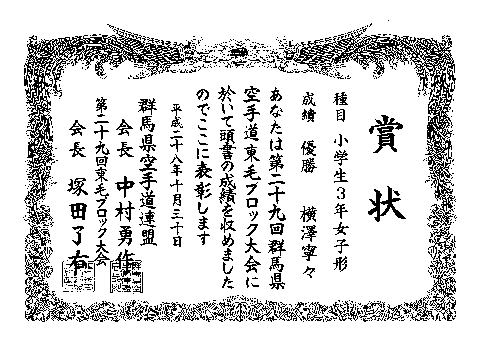 賞状
種目 小学生3年女子形
成績 優勝 横澤寧々
あなたは第二十九回群馬県
空手道東毛ブロック大会に
於いて頭書の成績を収めました
のでここに表彰します
平成二十八年十月三十日
群馬県空手道連盟
会長 中村勇作
第二十九回東毛ブロック大会
会長 塚田了右